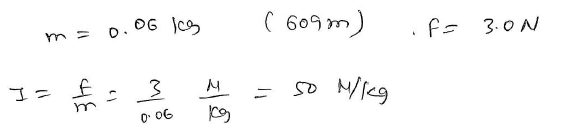 m = 0.06 kg (60gm) . f = 3.0 N
I = f/m = 3/0.06 N/kg = 50 N/kg